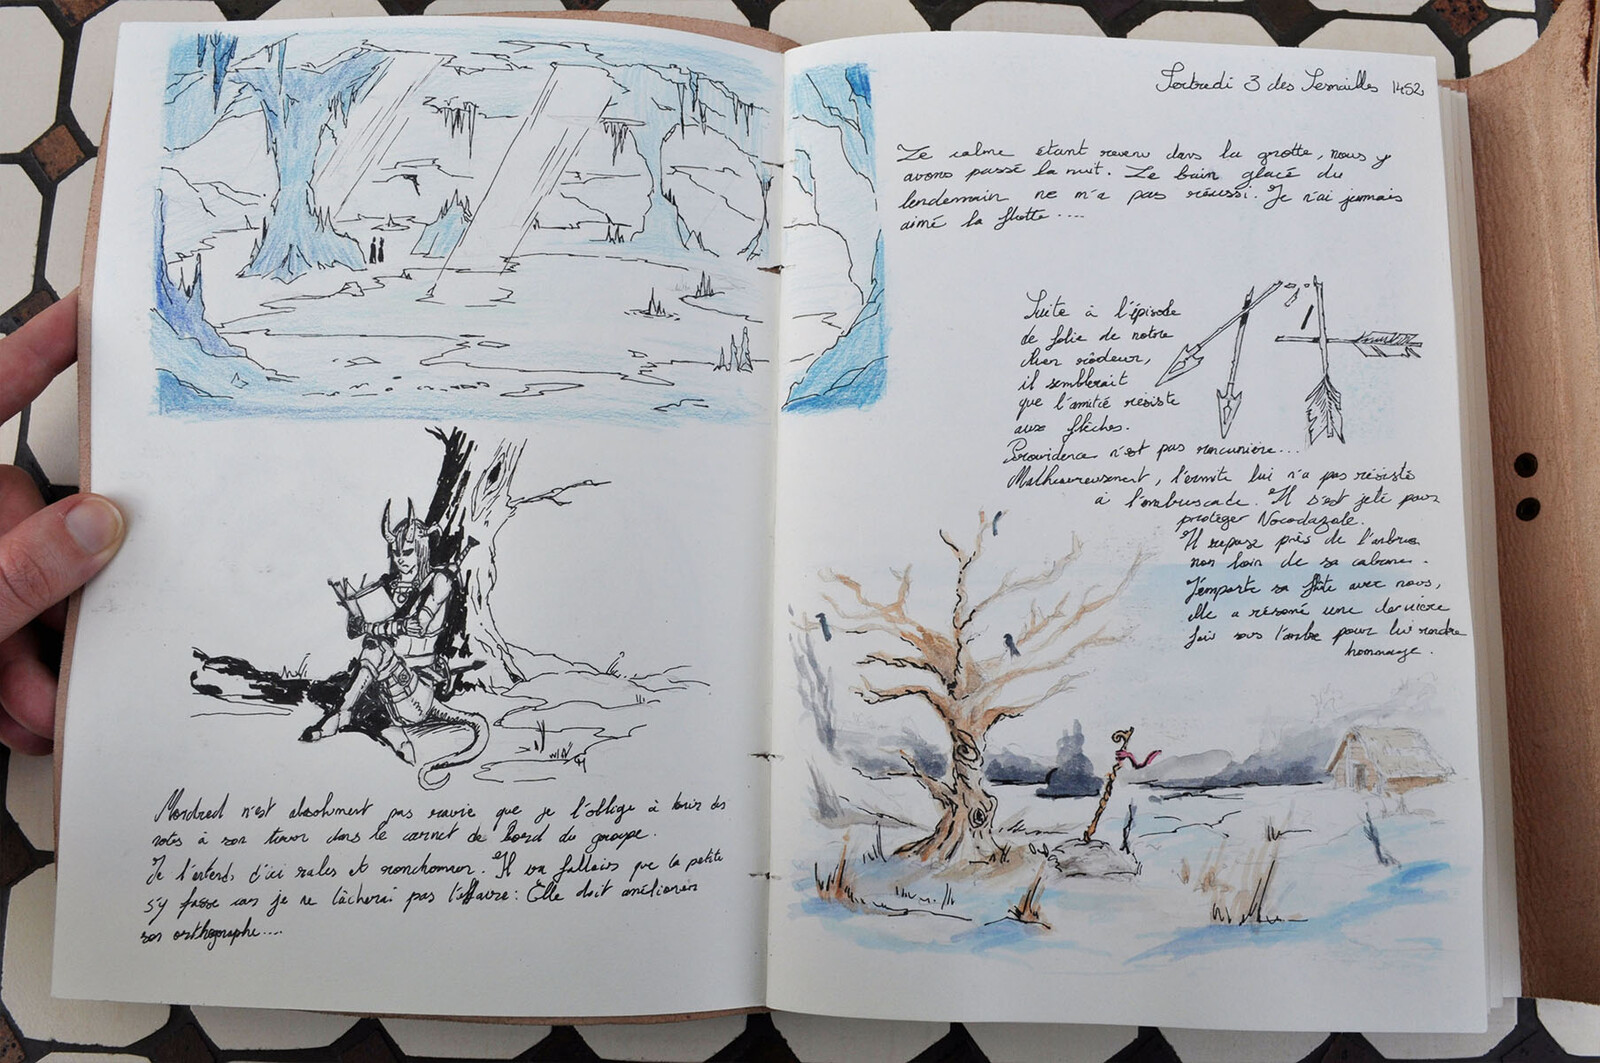 Mordred n'est absolument pas ravie que je l'oblige à tenir des
notes à son tour dans le carnet de bord du groupe.
Je l'entends d'ici raler et ronchonner. Il va falloir que la petite
s'y fasse car je ne lâcherai pas l'affaire: Elle doit améliorer
son orthographe....
3 des Semailles 1452
Le calme étant revenu dans la grotte, nous y
avons passé la nuit. Le bain glacé du
lendemain ne m'a pas réussi. Je n'ai jamais
aimé la flotte ....
Suite à l'épisode
de folie de notre
cher rôdeur,
il semblerait
que l'amitié résiste
aux flèches.
Providence n'est pas rancunière...
Malheureusement, l'ermite lui n'a pas résisté
à l'embuscade. Il s'est jeté pour
protéger Nocodazole.
Il repose près de l'arbre
non loin de sa cabane.
J'emporte sa flûte avec nous,
elle a résoné une dernière
fois sous l'arbre pour lui rendre
hommage.